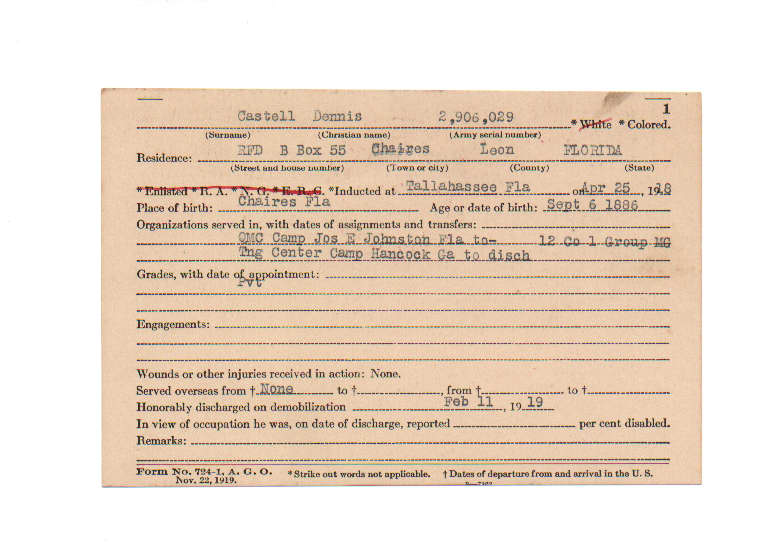 1
Castell Dennis 2,906,029 * White * Colored.
(Surname) (Christian name) (Army serial number)
Residence: RFD B Box 55 Chaires Leon FLORIDA
(Street and house number) (Town or city) (County) (State)
* Enlisted * R. A. * N. G. * E. R. C. *Inducted at Tallahassee Fla on Apr 25, 1918
Place of birth: Chaires Fla Age or date of birth: Sept 6 1886
Organizations served in, with dates of assignments and transfers:
QMC Camp Jos E Johnston Fla to- 12 Co 1 Group MG
Tng Center Camp Hancock Ga to disch
Grades, with date of appointment:
Pvt
Engagements:
Wounds or other injuries received in action: None.
Served overseas from † None to †, from † to †
Honorably discharged on demobilization Feb 11, 1919
In view of occupation he was, on date of discharge, reported per cent disabled.
Remarks:
Form No. 724-1, A. G. O. * Strike out words not applicable. † Dates of departure from and arrival in the U. S.
Nov. 22, 1919.